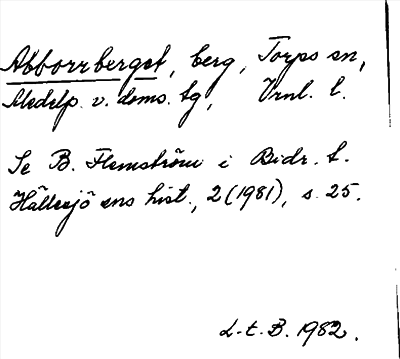 Abborrberget, berg, Torps sn,
Medelp. v. doms. tg, Vrnl. l.
Se B. Flemström i Bidr. t.
Hällesjö sns hist., 2 (1981), s. 25.
L.t.B. 1982.